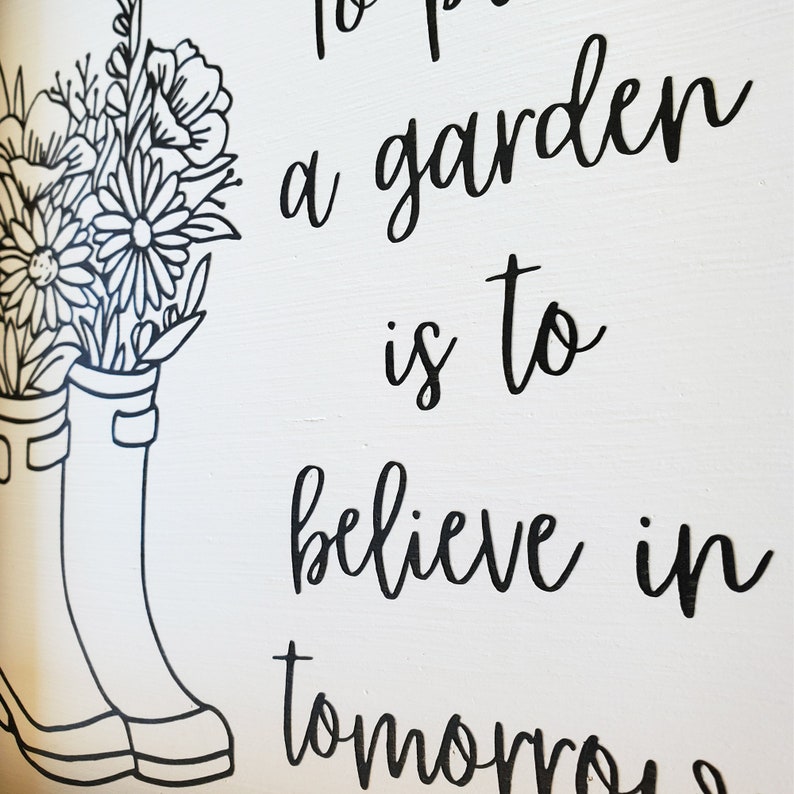 To p
a garden
is to
believe in
tomorrow